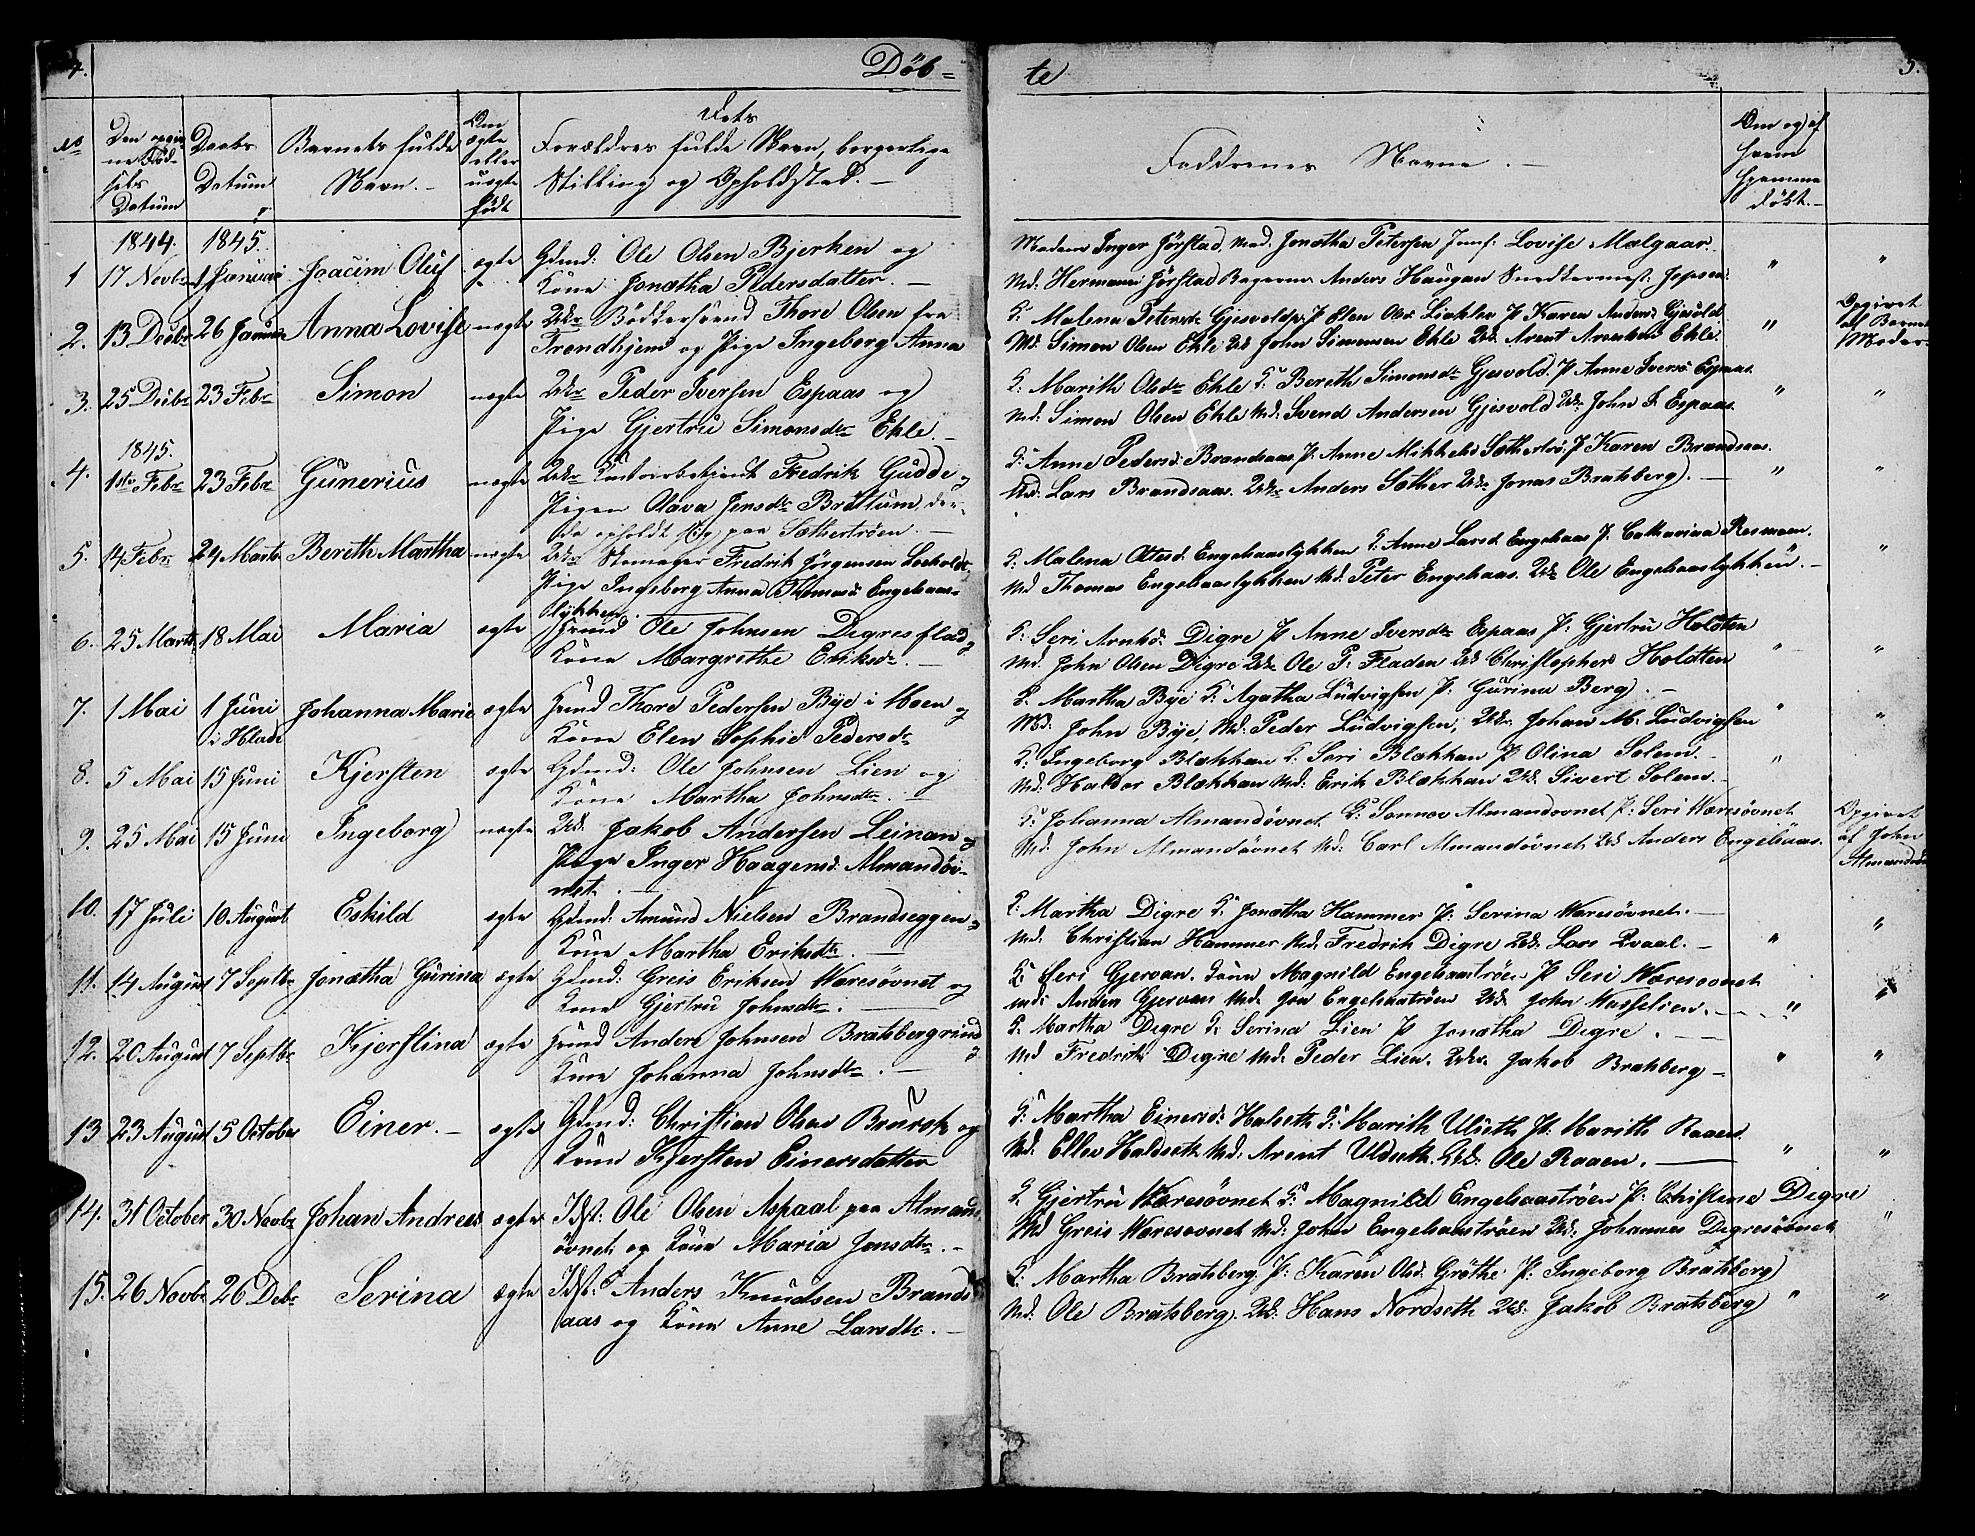 4. Døb= te 5.
No
Den opgiv-
ne Fød-
sels
Datum
Daabs
Datum
Barnets fulde
Navn.
Om
ægte
eller
uægte
født
Dets
Forældres fulde Navn, borgerlige
Stilling og Opholdsted. —
Faddrenes Navne. —
Om og af
hvem
hjemme
døbt. —
1844. 1845.
1 17 Novbr 1 Januar Joacim Oluf ægte Gdmd: Ole Olsen Bjerken og
Kone Jonetha Pedersdatter. —
Madam Inger Jørstad, Mad. Jonetha Petersen Jomf: Lovise Malgaar.
Md. Hermann Jørstad Bagersv. Anders Haugan Snedkermest. Jepsen. " "
2. 13 Decbr 26 Januar Anna Lovise uægte Uk: Bødkersvend Thore Olsen fra
Trondhjem og Pige Ingeborg Anna
K: Malena Petersdr Gjesvold P. Elen Olsd: P Karen Anders: Gjesvold
Md. Simon Olsen Ekle Uk John Simonsen Ekle Uk. Arent Arentsen Ekle. "
Opgivet
af Barnets
Moder.
3. 25 Decbr 23 Febr Simon uægte Uk: Peder Iversen Espaas og
Pige Gjertru Simonsdtr Ekle. —
K: Marith Olsdtr Ekle K: Bereth Simonsdr Gjesvold. P Anne Ivers: Espaas.
Md: Simon Olsen Ekle Md: Svend Andersen Gjesvold Uk: John I. Espaas. " "
1845.
4. 1ste Febr 23 Febr Gunerius uægte Uk: Contoirbetjent Fredrik Gudde og
Pigen Olava Jensdtr Brøttum, der
opholdt sig paa Sæthertrøen. —
K: Anne Pedersd: Brandsaas. P. Anne Mikkelsd Sæthertrø: P Karen Brandsaas.
Md: Lars Brandsaas. Uk: Anders Sæther Uk: Jonas Bratsberg. — " "
5. 14 Febr 24 Marts Bereth Martha uægte Uk: Skomager Fredrik Jørgensen
Pige Ingeborg Anna Thomasd: Engelsaas-
lykken
K: Malena Engelsaaslykken K: Anne Larsd: Engelsaas P. Catharina Resmoen.
Md Thomas Engelsaaslykken Md. Peter Engelsaas. Uk: Ole Engelsaaslykken. — " "
6. 25 Marts 18 Mai Maria ægte Hmd Ole Johnsen Digresflad og
Kone Margrethe Eriksdr. —
K: Seri Arntsd: Digre P Anne Iversdtr Espaas P: Gjertru Holdten
Md. John Olsen Digre Uk: Ole P. Fladen Uk Christopher Holdten " "
7. 1 Mai 1 Juni i Hlade Johanna Marie ægte Hmd Thore Pedersen Bye i Moen og
Kone Elen Sophie Pedersdr
K. Martha Bye K: Agatha Ludvigsen P: Gurina Berg. —
Md. John Bye, Md. Peder Ludvigsen, Uk: Johan M. Ludvigsen " "
8. 5 Mai 15 Juni Kjersten ægte Gdmd: Ole Johnsen Lien og
Kone Martha Johnsdtr. —
K: Ingeborg Blækkan K: Seri Blækkan P Olina Solem. —
Md. Haldor Blækkan Md: Erik Blækkan Uk: Sivert Solem. — "
9. 25 Mai 15 Juni Ingeborg uægte Uk. Jakob Andersen Leinan og
Pige Inger Haagensd: Almandøv-
net. —
K: Johanna Almandøvnet K: Sonnov Almandovnet P: Seri Wæresøvnet
Md. John Almandøvnet Md: Carl Almandøvnet Uk Anders Engelsaas.
Opgivet
af John
Almandøvnet
10. 17 Juli 10 August Eskild ægte Gdmd: Amund Nielsen Brandseggen og
Kone Martha Eriksdtr. —
K: Martha Digre K: Jonetha Hammer P: Serina Wæresøvnet. —
Md: Christian Hammer Md. Fredrik Digre Uk. Lars Qvaal. — " "
11. 14 August 7 Septbr Jonetha Gurina ægte Gdmd: Greis Eriksen Wæresøvnet og
Kone Gjertru Johnsdtr. —
K: Seri Gjervan. Kone Magnild Engelsaastrøen P Seri Wæresovnet
Md: Anders Gjervan Md. Jon Engelsaatrøen Uk. John Wasselien. — " "
12. 20 August 7 Septbr Kjerstina ægte Hmd Anders Johnsen Bratsbergrind og
Kone Johanna Johnsdtr. —
K: Martha Digre K: Serina Lien P Jonetha Digre. —
Md Fredrik Digre Md. Peder Lien. Uk: Jakob Bratsberg — " "
13. 23 August 5 October Einer. — ægte Gdmd: Christian Olsen Beursk og
Kone Kjersten Einersdatter
K: Martha Einersd: Halseth K: Marith Ulseth P: Marith Raaen.
Md. Ellev Haldseth Md. Arent Uldseth. Uk: Ole Raaen. — " "
14. 31 October 30 Novbr Johan Andreas ægte Idst: Ole Olsen Aspaal paa Almand-
øvnet og Kone Maria Jensdtr. —
K. Gjertru Wæresøvnet K: Magnild Engelsaastrøen P: Christine Digre
Md Greis Wæresovnet Md: John Engelsaastrøen Uk: Johannes Digresøvnet "
15. 26 Novbr 26 Debr Serina ægte Idst: Anders Knudsen Brands
aas og Kone Anne Larsdtr. —
K: Martha Bratsberg. P: Karen Olsd. Grøthe P: Ingeborg Bratsberg
Md. Ole Bratsberg. Uk: Hans Nordseth Uk: Jakob Bratsberg " "